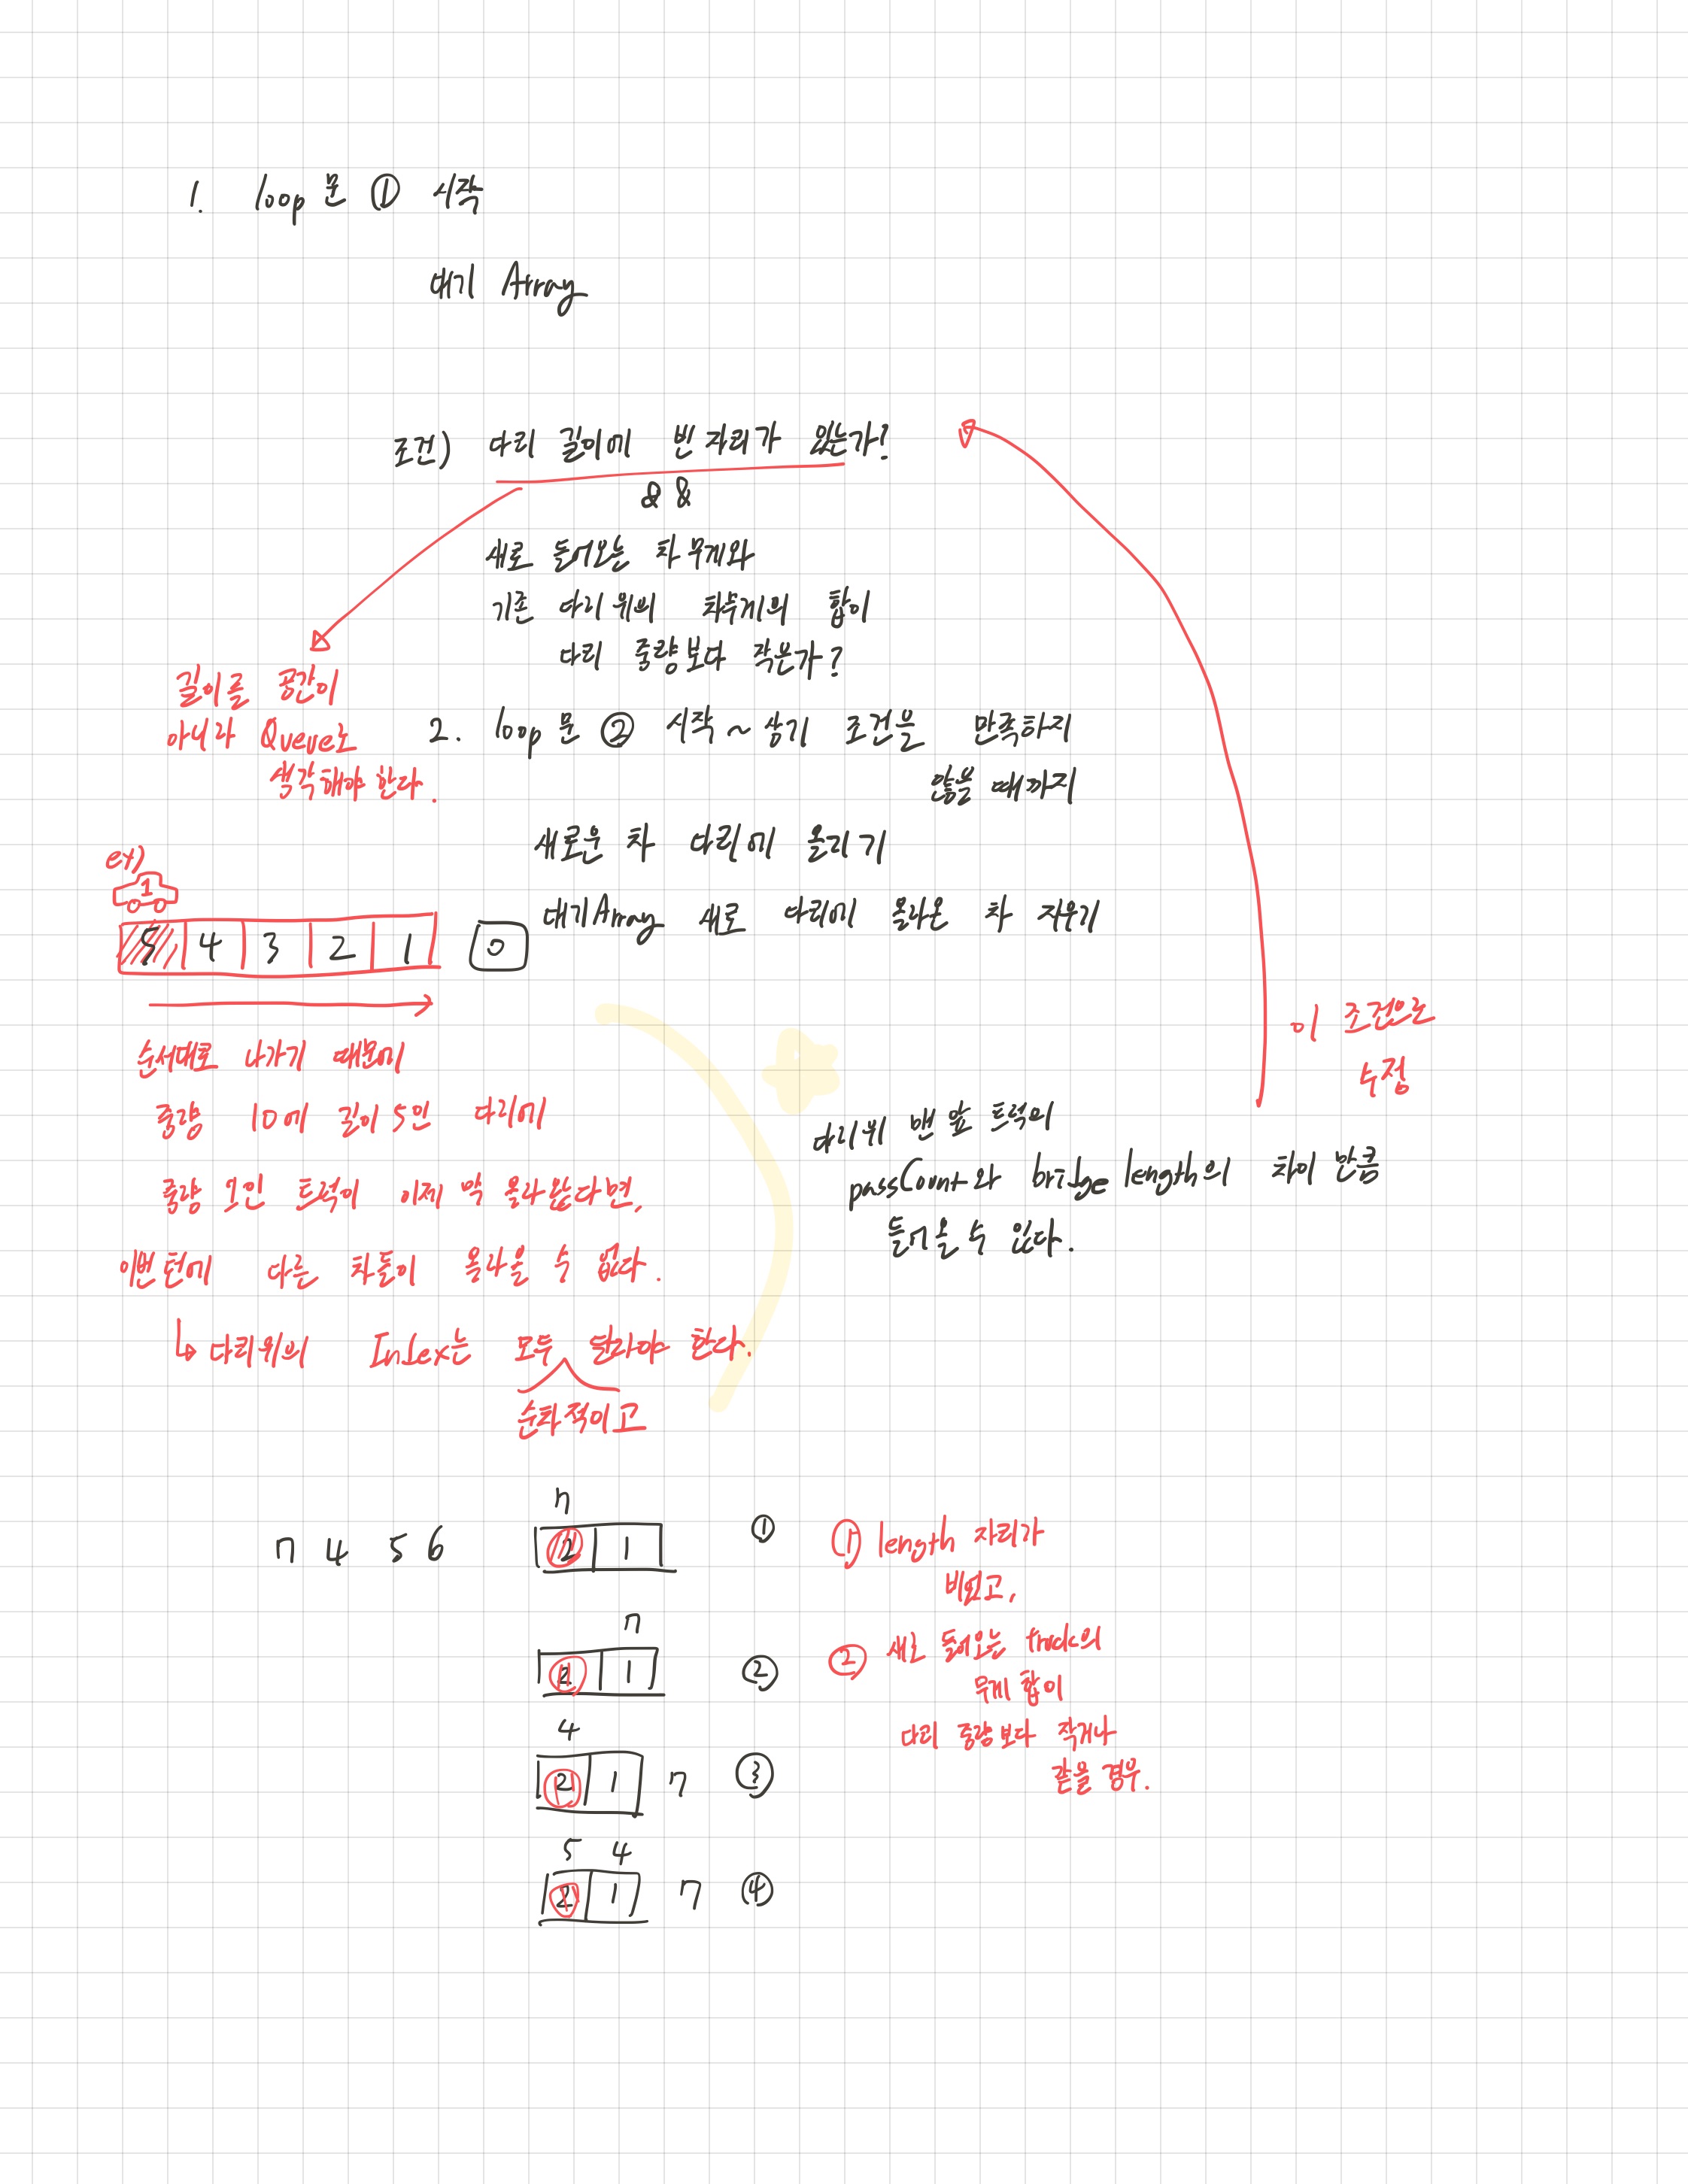 1. loop문 ① 시작
대기 Array
조건) 다리 길이에 빈 자리가 있는가?
&&
새로 들어오는 차 무게와
기존 다리 위의 차무게의 합이
다리 중량보다 작은가?
길이를 공간이
아니라 Queue로
생각해야 한다.
2. loop문 ② 시작 ~ 상기 조건을 만족하지
않을 때까지
새로운 차 다리에 올리기
대기Array 새로 다리에 올라온 차 지우기
ex)
1
5 4 3 2 1 0
순서대로 나가기 때문에
중량 10에 길이 5인 다리에
중량 1인 트럭이 이제 막 올라왔다면,
이번턴에 다른 차들이 올라올 수 없다.
↳ 다리위의 Index는 모두 달라야 한다.
순차적이고
이 조건으로
수정
다리위 맨 앞 트럭의
passCount와 bridge length의 차이 만큼
들어올 수 있다.
7 4 5 6
7
2 1 ①
7
2 1 ②
4
2 1 7 ③
5 4
2 1 7 ④
① length 자리가
비었고,
② 새로 들어오는 truck의
무게 합이
다리 중량보다 작거나
같을 경우.